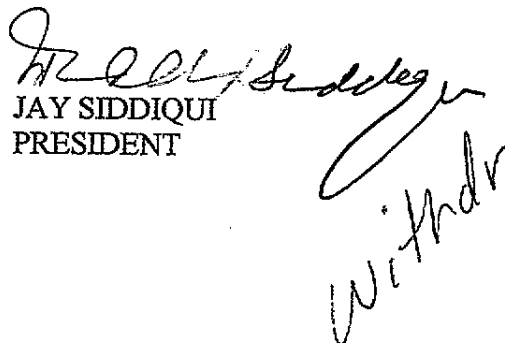 Siddiqui
JAY SIDDIQUI
PRESIDENT
Withdr